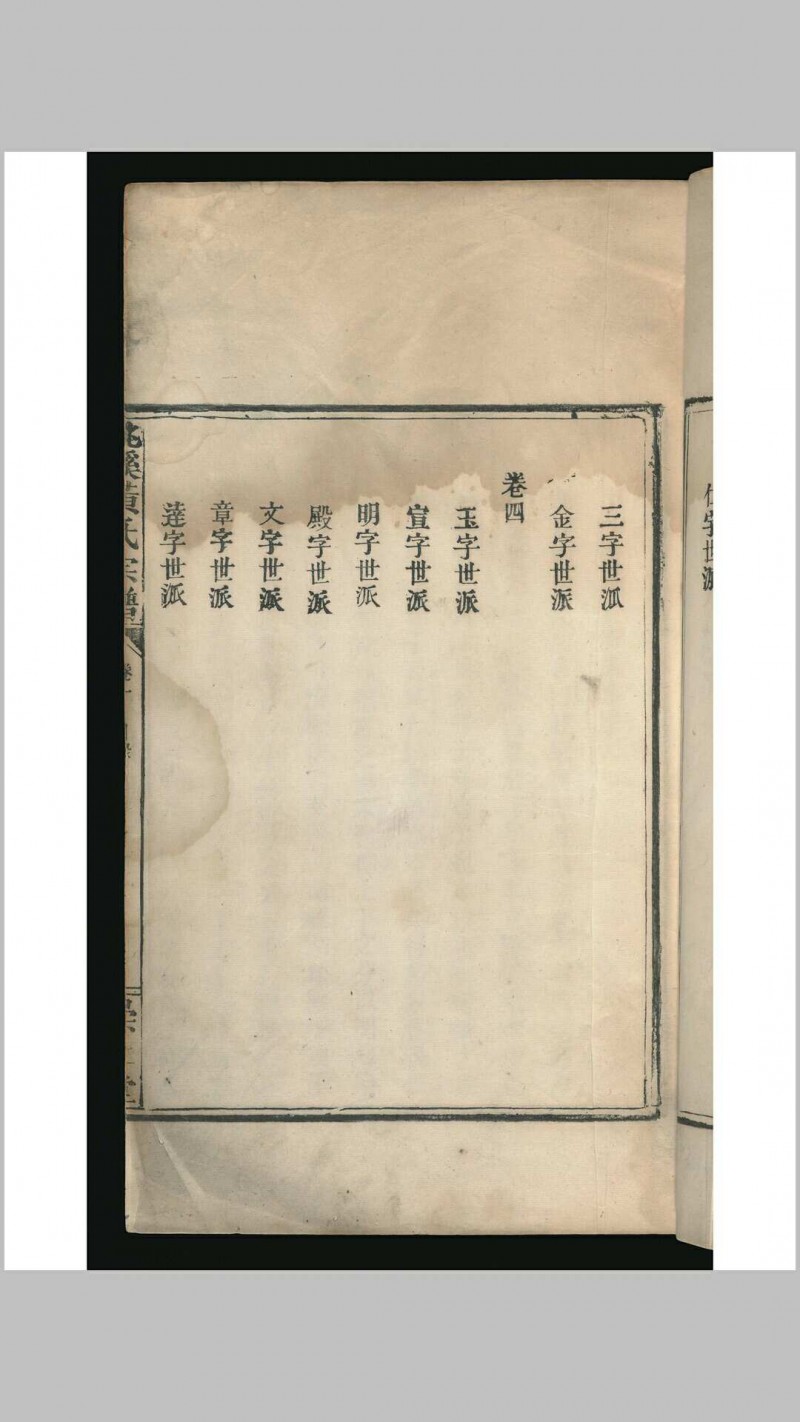 三字世派
金字世派
卷四
玉字世派
宣字世派
明字世派
殿字世派
文字世派
章字世派
達字世派
溪黃氏宗譜
卷一
字世派